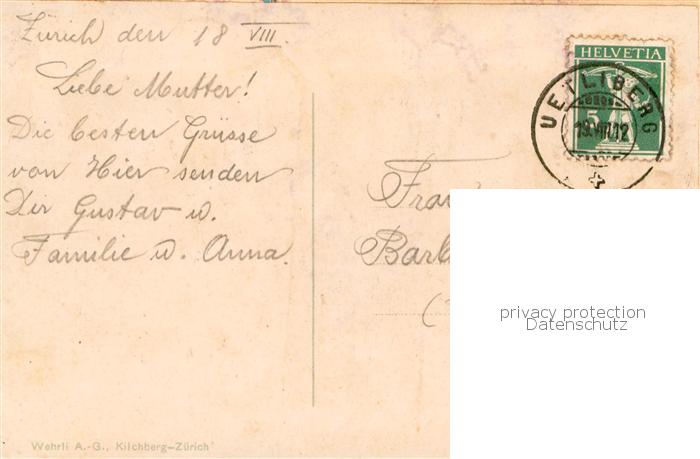 Zürich den 18 VIII.
Liebe Mutter!
Die besten Grüsse
von Hier senden
Dir Gustav u.
Familie u. Anna.
Wehrli A.-G., Kilchberg-Zürich
HELVETIA
5
UETLIBERG
19.VIII.12
Frau
Barb
(
privacy protection
Datenschutz